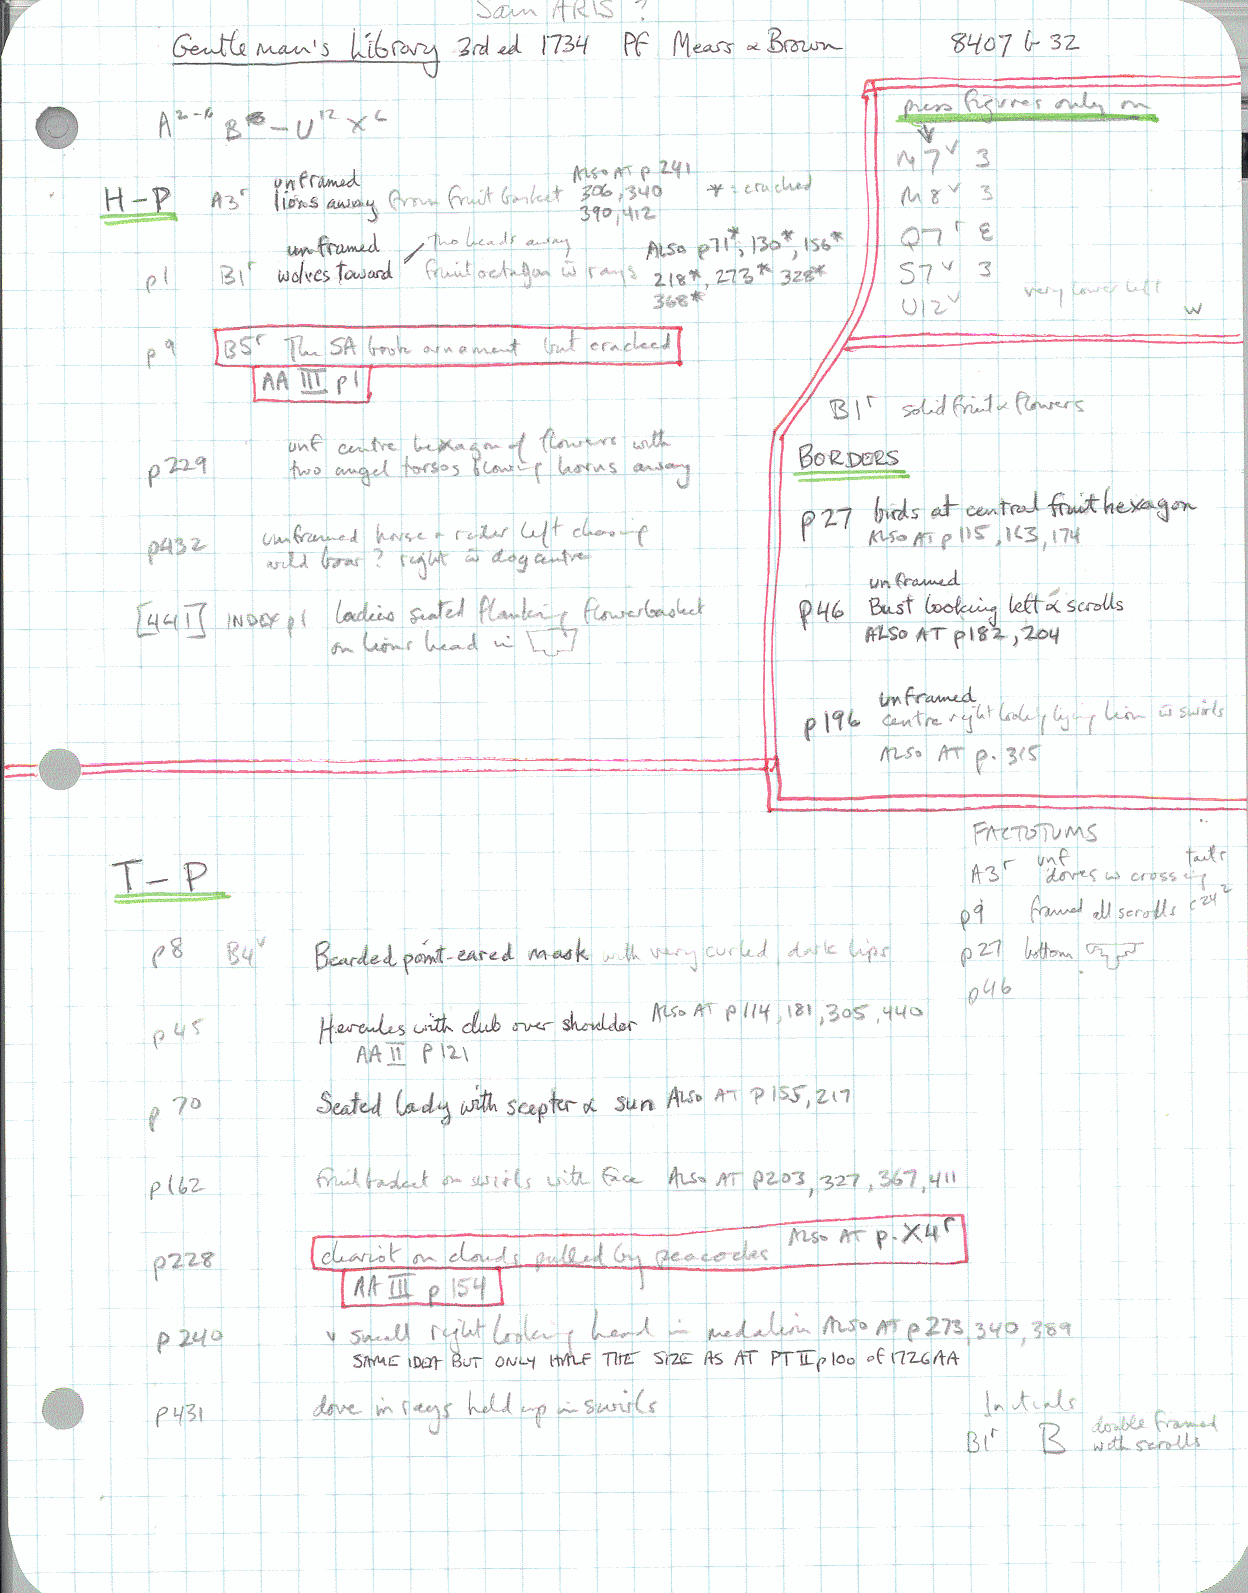 Sam ARIS ?
Gentleman's Library 3rd ed 1734 PF Mears & Brown 8407 b 32
A²⁻⁶ B – U¹² X⁶
press figures only on
N7ᵛ 3
M8ᵛ 3
Q7ʳ
S7ᵛ 3
U12ᵛ very lower left
H–P A3ʳ unframed
lions away from fruit basket
ALSO AT p 241
306, 340
390, 412
* = cracked
p1 B1ʳ unframed
wolves toward
two heads away
fruit octagon w rays
ALSO p71*, 130*, 156*
218*, 273* 328*
368*
p9 B5ʳ The SA book ornament but cracked
AA III p1
p229 unf centre hexagon of flowers with
two angel torsos blowing horns away
p432 unframed horse & rider left chasing
wild boar? right w dog centre
[441] INDEX p1 Ladies seated flanking flowerbasket
on lions head in
B1ʳ solid fruit & flowers
BORDERS
p27 birds at central fruit hexagon
ALSO AT p115, 163, 174
unframed
p46 Bust looking left & scrolls
ALSO AT p182, 204
unframed
p196 centre right looking lying lion w swirls
ALSO AT p. 315
FACTOTUMS
A3ʳ unf doves w crossing tails
p9 framed all scrolls c24²
p27 bottom
p46
T–P
p8 B4ᵛ Bearded point-eared mask with very curled, dark lips
p45 Hercules with club over shoulder ALSO AT p114, 181, 305, 440
AA II p121
p70 Seated lady with scepter & sun ALSO AT p155, 217
p162 fruitbasket on swirls with face ALSO AT p203, 327, 367, 411
p228 chariot on clouds pulled by peacocks ALSO AT p. X4ʳ
AA III p154
p240 small right looking head in medalion ALSO AT p273, 340, 389
SAME IDEA BUT ONLY HALF THE SIZE AS AT PT II p100 of 1726 AA
p431 dove in rays held up in swirls
Initials
B1ʳ B double framed
with scrolls